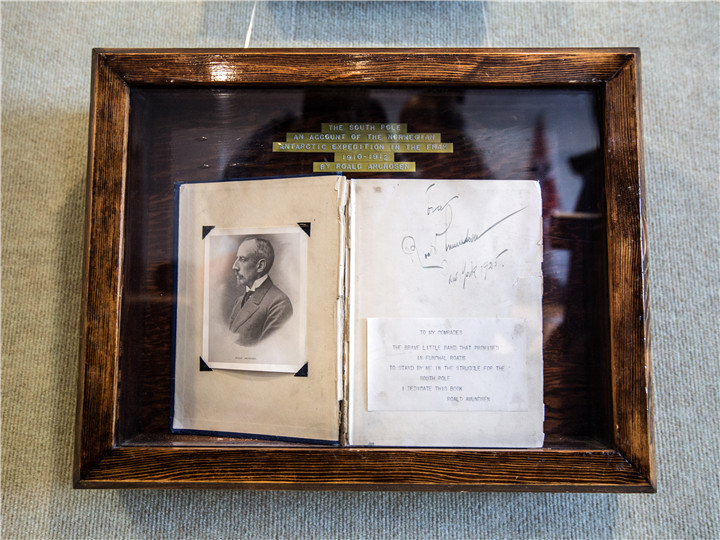 THE SOUTH POLE
AN ACCOUNT OF THE NORWEGIAN
ANTARCTIC EXPEDITION IN THE FRAM
1910-1912
BY ROALD AMUNDSEN
Roald Amundsen
New York 1925
TO MY COMRADES
THE BRAVE LITTLE BAND THAT PROMISED
IN FUNCHAL ROADS
TO STAND BY ME IN THE STRUGGLE FOR THE
SOUTH POLE
I DEDICATE THIS BOOK
ROALD AMUNDSEN